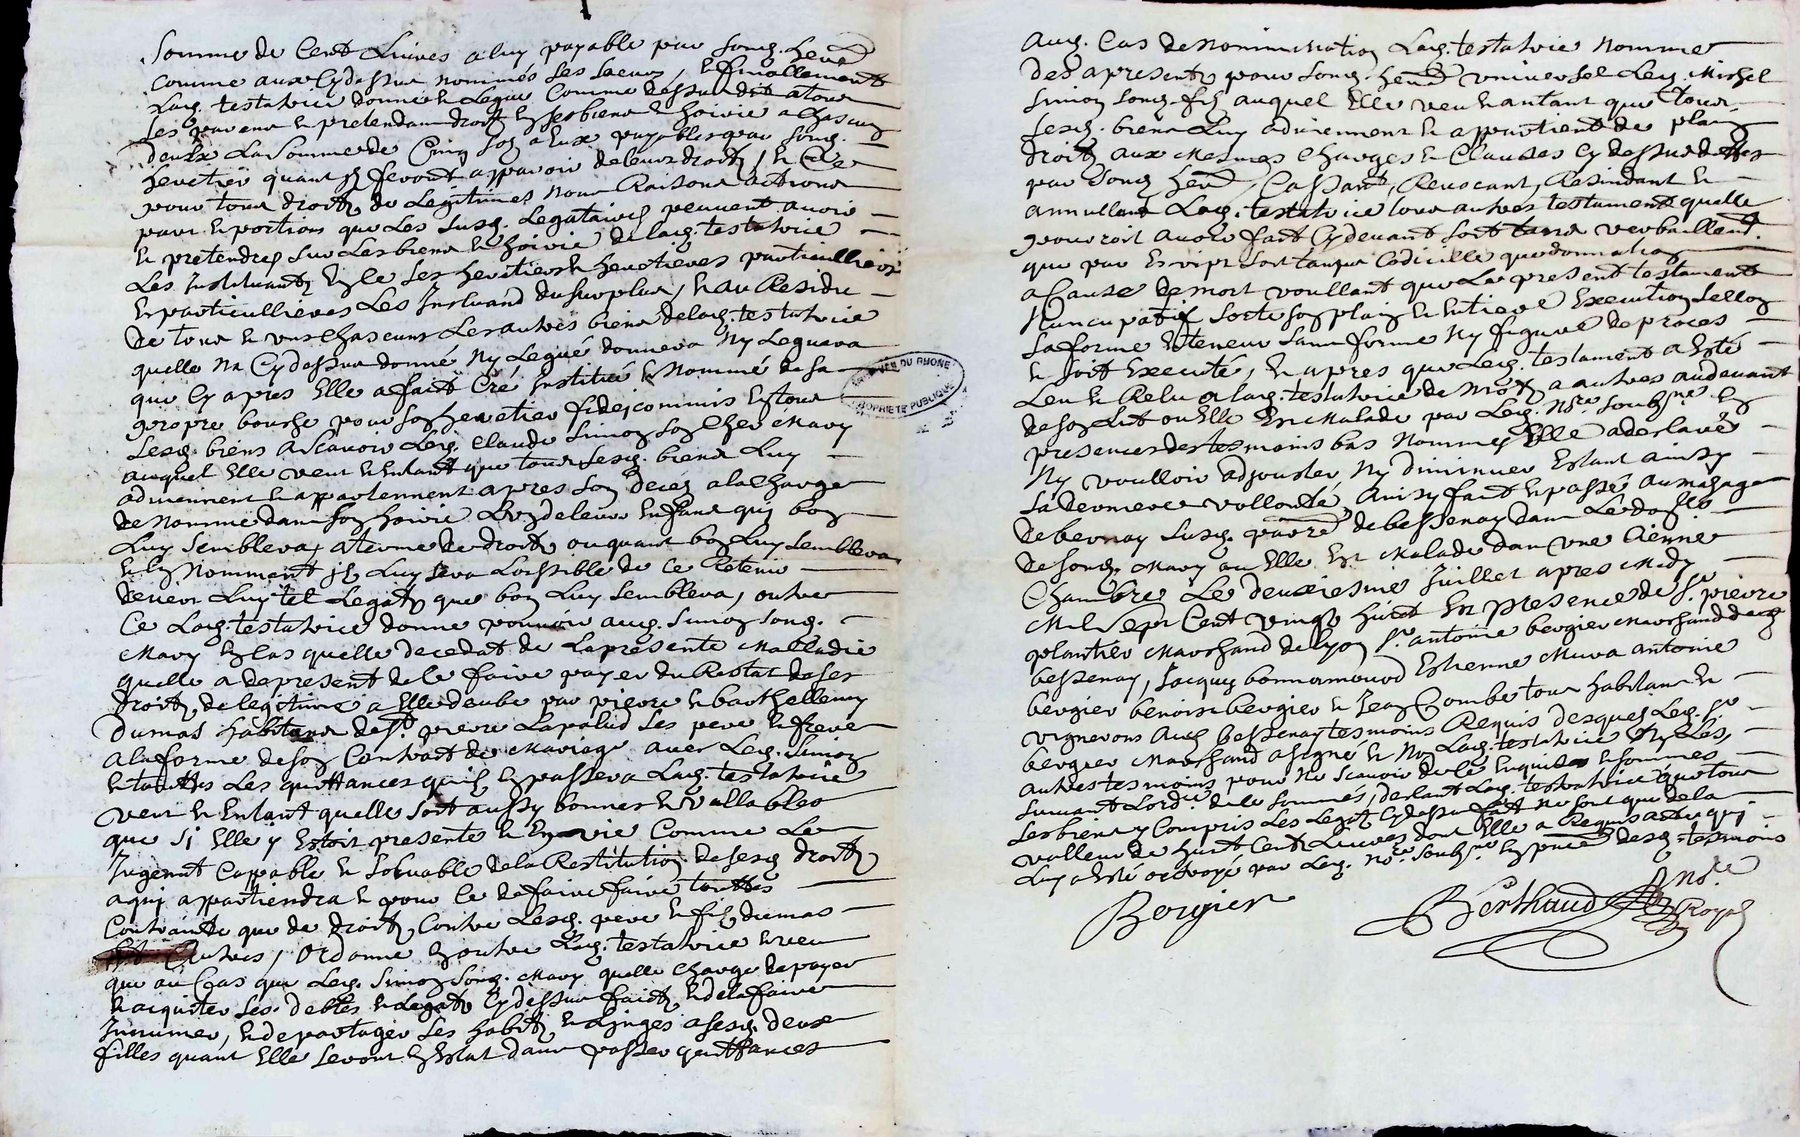 Somme de Cent Livres a luy payable par Sond. here
Comme aux Cydessus nommés Ses Soeurs, et finallement
Lad. testatrice donne et Legue Comme dessus dit a tous
Ses parens et pretendans droit en Ses biens et hoirie a chascun
deulx La Somme de Cinq Sols a eux payables par Sond.
heretier quant Ils feront apparoir de leurs droits, et Ce
pour tous droits de Legitimes Noms Raisons actions
parts et portions que Les Susd. Legataires peuvent avoir
et pretendres Sur Les biens et hoirie de lad. testatrice
Les Instituants Ses heritiers et heretieres particulliers
et particullieres Les Instuand du Surplus, et au Residu
de tous et uns Chascuns Les autres biens de lad. testatrice
quelle Na Cydessus donné Ny Legué donnera Ny Leguera
que Cy apres Elle a fait Cré Institué et Nommé de Sa
propre bouche pour Son heretier fideicommis en tous
Sesd. biens ascavoir Led. Claude Simon Son Cher Mary
auquel Elle veut et Entant que tous Sesd. biens Luy
adviennent et appartennent apres Son deces a la Charge
de Nommé dans Son hoirie Un de leurs Enfans qui bon
Luy Semblera, a terme de droit, ou quant bon Luy Semblera
et En Nomment Il Luy Sera Loissible de Ce Retenir
Tel Legat que bon Luy Semblera, outre
Ce Lad. testatrice donne pouvoir aud. Simon Sond.
Mary En Cas quelle decedat de La presente Malladie
quelle a de present de Ce faire payer du Restat de Ses
droits de legitime a Elle deubs par pierre et barthellemy
dumas habitans de St. pierre Lapalud Ses pere et frere
a la forme de Son Contract de Mariage avec Led. Simon
et touttes Les quittances quil En passera Lad. testatrice
veut et Entant quelle Soit aussy bonnes et Vallables
que Si Elle y Estoit presente et En vie Comme Le
Jugeant Capable et Solvable de la Restitution de Sesd. droits
a qui appartiendra et pour Ce de faire faire touttes
Contrainte que de droit, Contre Lesd. pere et fils dumas
et autres, ordonne En outre Lad. testatrice et veu
que au Cas que Led. Simon Sond. Mary quelle Charge de payer
et acquiter Ses debtes et Legats Cydessus faicts et de la faire
Inhumer, et de partager Ses habits et Linges a Sesd. deux
filles quant Elle Seront En Estat dans passer quittances
Aud. Cas de Nommination Lad. testatrice Nomme
des apresent, pour Sond. here universel Led. Michel
Simon Sond. fils auquel Elle veu et antant que tous
Sesd. biens Luy adviennent et appartient de plain
droit, aux Mesmes Charges et Clauses Cy dessus dittes
par Sond. here, Cassant, Revocant, Resindant et
annullant Lad. testatrice tous autres testaments quelle
pouvroit avoir fait Cy devant Soit tant verballemt.
que par Escript Soit tampar Codicille que donnation
a Cause de mort voullant que Le present testament
Nuncupatif Sorte Son plain et entiere Execution Sellon
Sa forme et teneur Sans forme Ny figure de proces
et Soit Executé, et apres que Led. testament a esté
Leu et Relu a Lad. testatrice de Mots a autres au devant
de Son Lit ou Elle Est Malade par Led. Nre. Soubsne. En
presences des tesmoins bas Nommés Elle a declaré
Ny voulloir adjouster Ny diminuer Estant ainsy
Sa derniere vollonté, Ainsy fait et passé au mesage
de bernay Susd. parre. de bessenay dans Le domicille
de Sond. Mary ou Elle Est Malade dans une Sienne
Chambre Le deuxiesme Juillet apres Midy
Mil Sept Cent vingt huict En presence de Sr. pierre
plantier Marchand de lyon Sr. antoine bergier Marchand dud.
bessenay, Jacques bonnamoud Estienne Mura antoine
bergier benoist bergier et Jean Combe tous habitans et
vignerons Aud. bessenay tesmoins Requis desquels Led. Sr.
bergier Marchand a Signé et Non Lad. testatrice Ny Les
autres tesmoins pour Ne Scavoir de Ce Enquis et Sommes
Suivant Lordce. de Ce Sommés, declant Lad. testatrice que tous
Ses biens y Compris Les Legats Cydessus fait Ne Sont que de la
valleur de huit Cent Livres dont Elle a Requis acte qui
Luy a Esté octroyé par Led. Nre. Soubsne. En pnce. desd. tesmoins
Bergier
Berthaud Nre. Royal
ARCHIVES DU RHONE
PROPRIETE PUBLIQUE